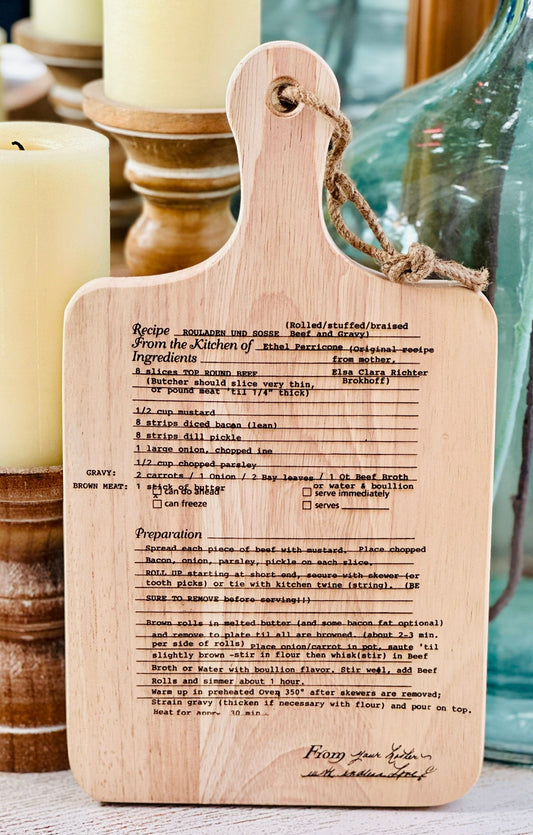 (Rolled/stuffed/braised
Recipe ROULADEN UND SOSSE Beef and Gravy)
From the Kitchen of Ethel Perricone (Original recipe
Ingredients from mother,
8 slices TOP ROUND BEEF Elsa Clara Richter
(Butcher should slice very thin, Brokhoff)
or pound meat 'til 1/4" thick)
1/2 cup mustard
8 strips diced bacon (lean)
8 strips dill pickle
1 large onion, chopped ine
1/2 cup chopped parsley
GRAVY: 2 carrots / 1 Onion / 2 Bay leaves / 1 Qt Beef Broth
BROWN MEAT: 1 stick of butter or water & boullion
can do ahead serve immediately
can freeze serves
Preparation
Spread each piece of beef with mustard. Place chopped
Bacon, onion, parsley, pickle on each slice.
ROLL UP starting at short end, secure with skewer (or
tooth picks) or tie with kitchen twine (string). (BE
SURE TO REMOVE before serving!!)
Brown rolls in melted butter (and some bacon fat optional)
and remove to plate til all are browned. (about 2-3 min.
per side of rolls) Place onion/carrot in pot, saute 'til
slightly brown -stir in flour then whisk(stir) in Beef
Broth or Water with boullion flavor. Stir well, add Beef
Rolls and simmer about 1 hour.
Warm up in preheated Oven 350° after skewers are removed;
Strain gravy (thicken if necessary with flour) and pour on top.
Heat for appx. 30 min.
From your
with endless Love